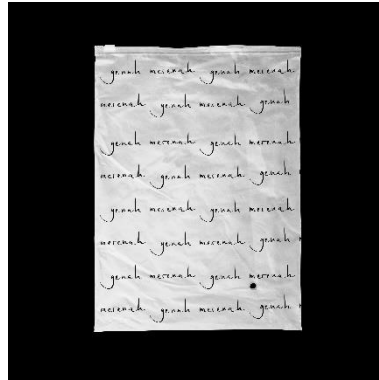 genah merenah genah merenah
merenah genah merenah genah
genah merenah genah merenah
merenah genah merenah genah
genah merenah genah merenah
merenah genah merenah genah
genah merenah genah merenah
merenah genah merenah genah